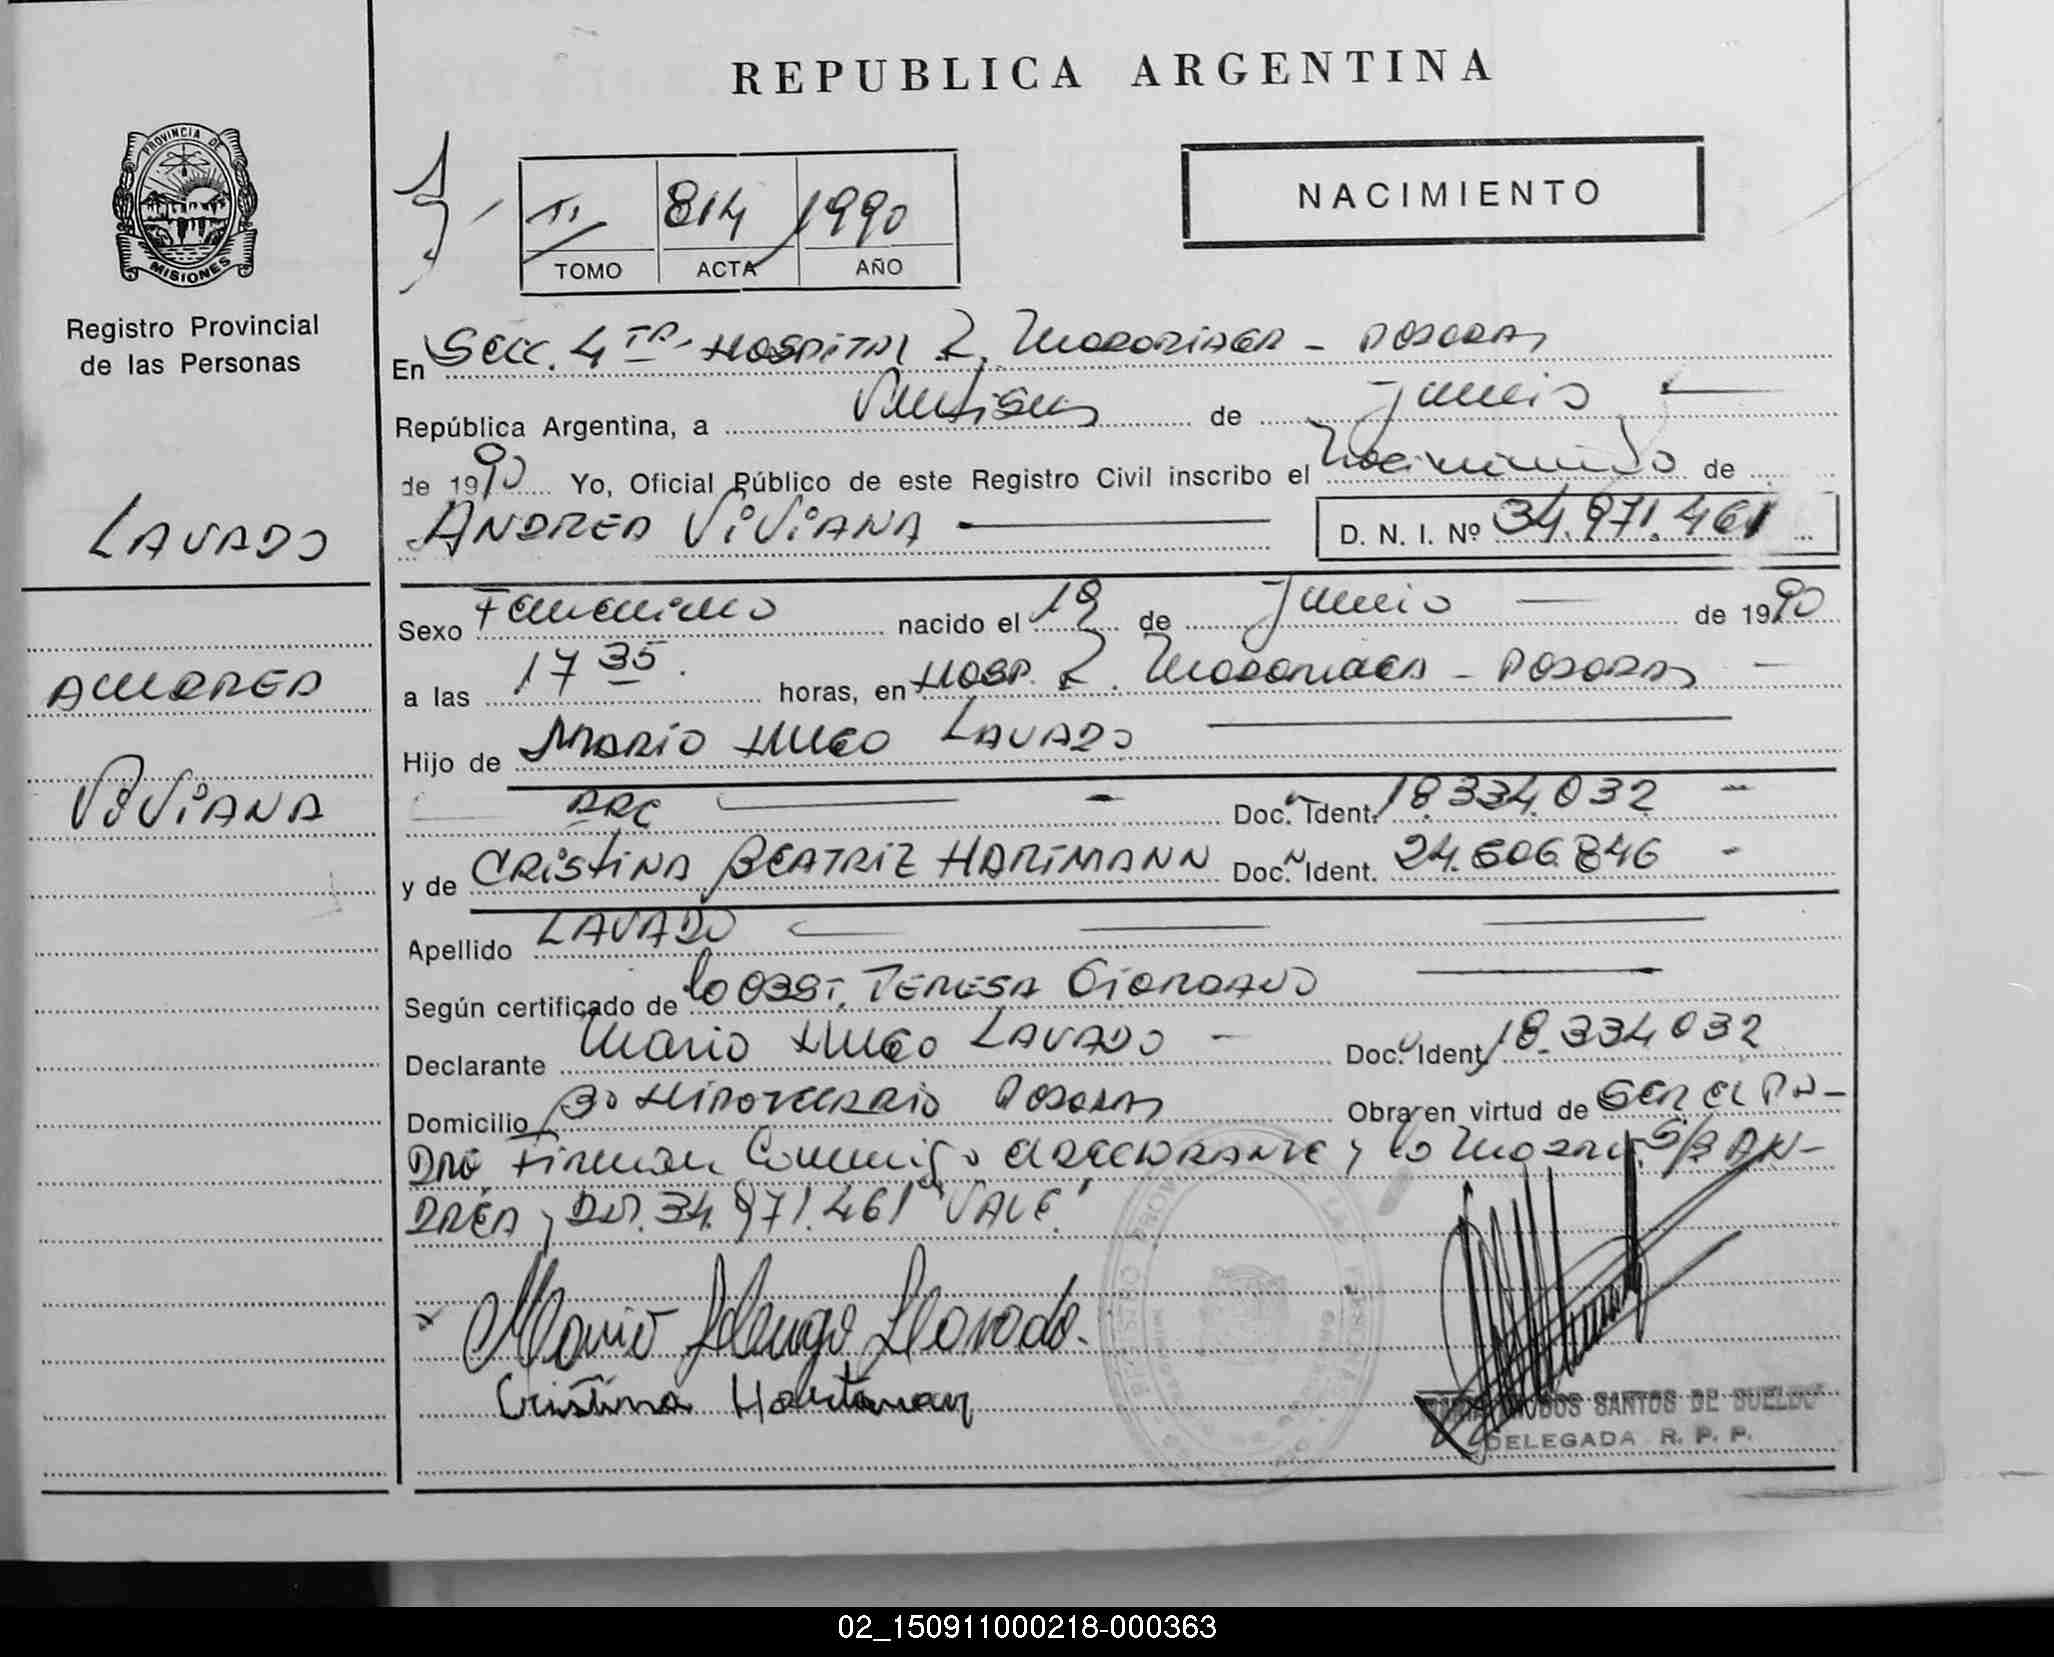 REPUBLICA ARGENTINA
PROVINCIA DE
MISIONES
Registro Provincial
de las Personas
LAVADO
ANDREA
VIVIANA
NACIMIENTO
TI 814 1990
TOMO ACTA AÑO
En Secc. 4 TA - HOSPITAL R. MADARIAGA - POSADAS
República Argentina, a Veintiseis de Junio
de 1990 Yo, Oficial Público de este Registro Civil inscribo el Nacimiento de
ANDREA VIVIANA D. N. I. Nº 34.971.461
Sexo Femenino nacido el 19 de Junio de 1990
a las 17 35 horas, en HOSP. R. MADARIAGA - POSADAS -
Hijo de MARIO HUGO LAVADO
ARG - Doc. Ident. 18.334.032 -
y de CRISTINA BEATRIZ HARTMANN Doc. Ident. 24.606.846 -
Apellido LAVADO
Según certificado de la OBST. TERESA GIORDANO
Declarante MARIO HUGO LAVADO - Doc. Ident. 18.334.032
Domicilio Bº HIPOTECARIO POSADAS Obra en virtud de SER EL PA-
DRE. Firman Conmigo el DECLARANTE y la MADRE. S/B AN-
DREA, 34.971.461 "VALE"
Mario Hugo Lavado.
Cristina Hartman
DOS SANTOS DE SUELDO
DELEGADA R. P. P.
02_150911000218-000363